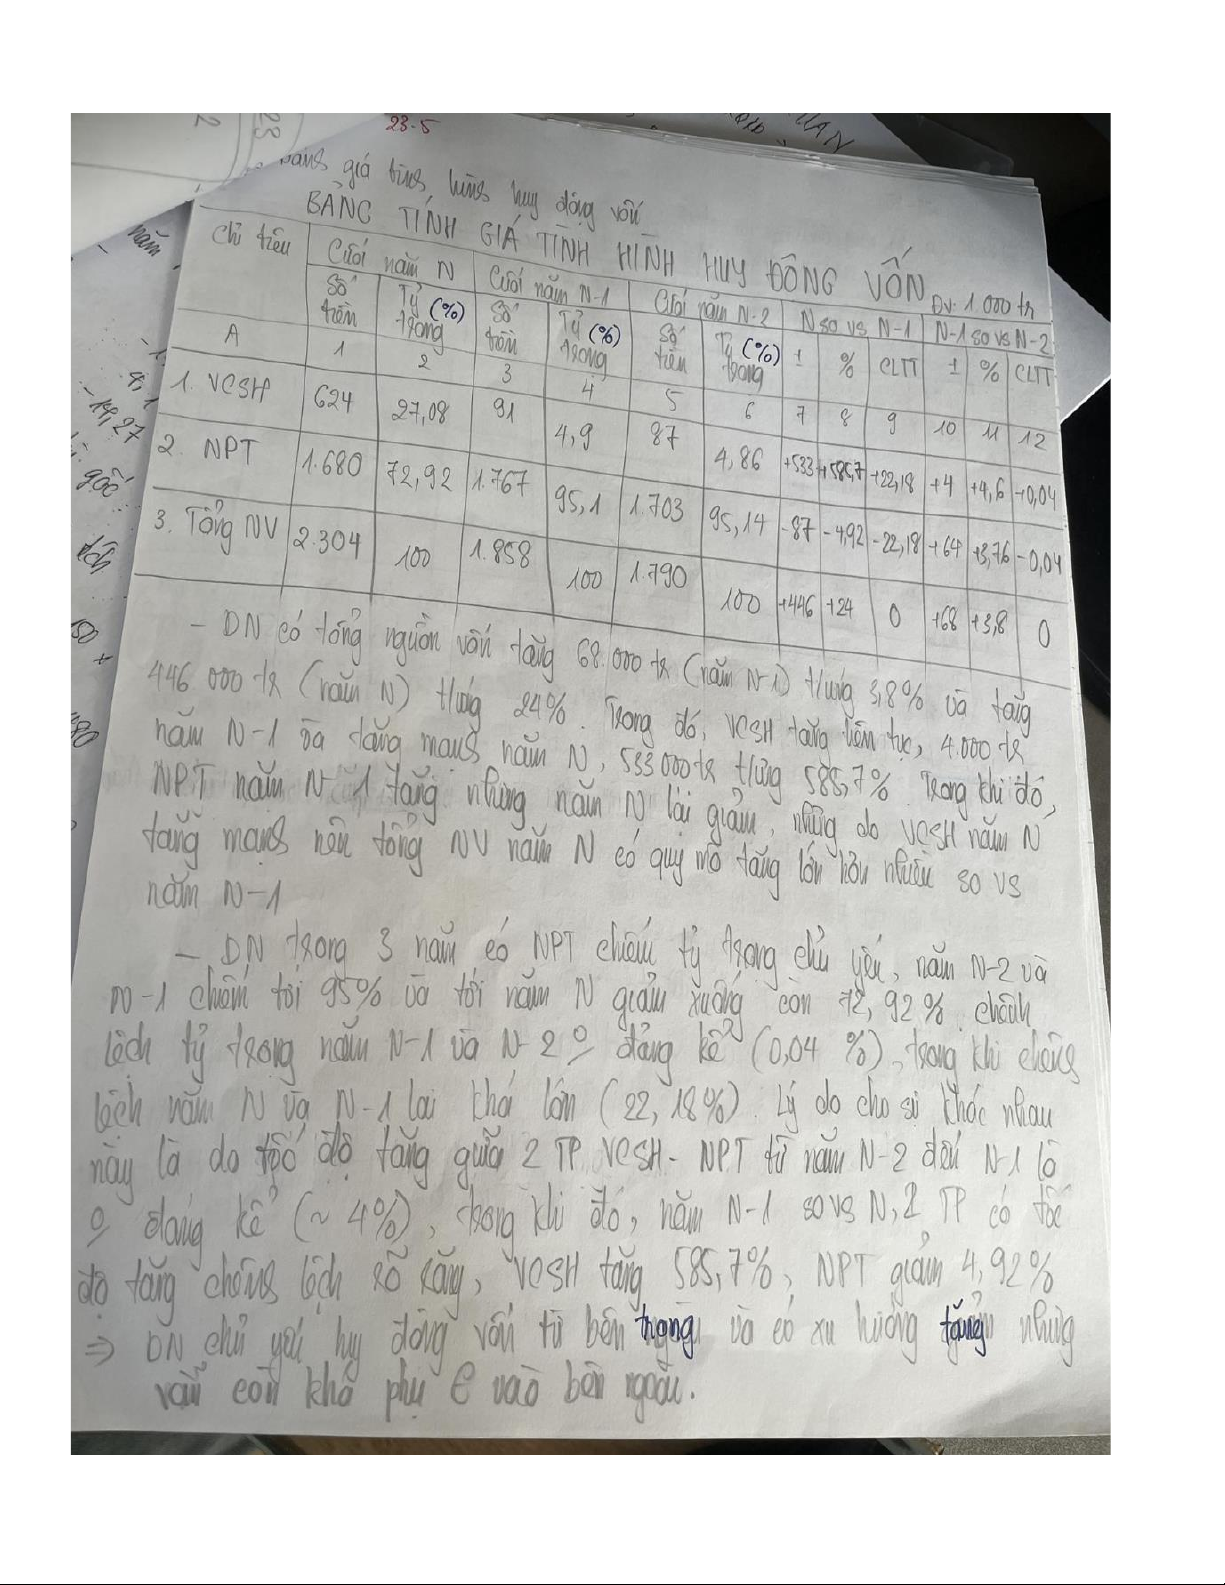 23.5
giá tình hình huy động vốn
BẢNG TÍNH GIÁ TÌNH HÌNH HUY ĐỘNG VỐN
ĐV: 1.000 tr
Chỉ tiêu | Cuối năm N | Cuối năm N-1 | Cuối năm N-2 | N so vs N-1 | N-1 so vs N-2
Số tiền | Tỷ trọng (%) | Số tiền | Tỷ trọng (%) | Số tiền | Tỷ trọng (%) | ± | % | CLTT | ± | % | CLTT
A | 1 | 2 | 3 | 4 | 5 | 6 | 7 | 8 | 9 | 10 | 11 | 12
1. VCSH | 624 | 27,08 | 91 | 4,9 | 87 | 4,86 | +533 | +585,7 | +22,18 | +4 | +4,6 | +0,04
2. NPT | 1.680 | 72,92 | 1.767 | 95,1 | 1.703 | 95,14 | -87 | -4,92 | -22,18 | +64 | +3,76 | -0,04
3. Tổng NV | 2.304 | 100 | 1.858 | 100 | 1.790 | 100 | +446 | +24 | 0 | +68 | +3,8 | 0
- DN có tổng nguồn vốn tăng 68.000 tr (năm N-1) tứng 3,8% và tăng
446 000 tr (năm N) tứng 24%. Trong đó, VCSH tăng liên tục, 4.000 tr
năm N-1 và tăng mạnh năm N, 533 000 tr tứng 585,7%. Trong khi đó,
NPT năm N-1 tăng nhưng năm N lại giảm, nhưng do VCSH năm N
tăng mạnh nên tổng NV năm N có quy mô tăng lớn hơn nhiều so vs
năm N-1
- DN trong 3 năm có NPT chiếm tỷ trọng chủ yếu, năm N-2 và
N-1 chiếm tới 95% và tới năm N giảm xuống còn 72,92%. chênh
lệch tỷ trọng năm N-1 và N-2 o đáng kể (0,04 %), trong khi chênh
lệch năm N và N-1 lại khá lớn (22,18%). Lý do cho sự khác nhau
này là do tốc độ tăng giữa 2 TP VCSH - NPT từ năm N-2 đến N-1 là
o đáng kể (~ 4%), trong khi đó, năm N-1 so vs N, 2 TP có tốc
độ tăng chênh lệch rõ ràng, VCSH tăng 585,7%, NPT giảm 4,92%
⇒ DN chủ yếu huy động vốn từ bên trong và có xu hướng tăng nhưng
vẫn còn khá phụ € vào bên ngoài.